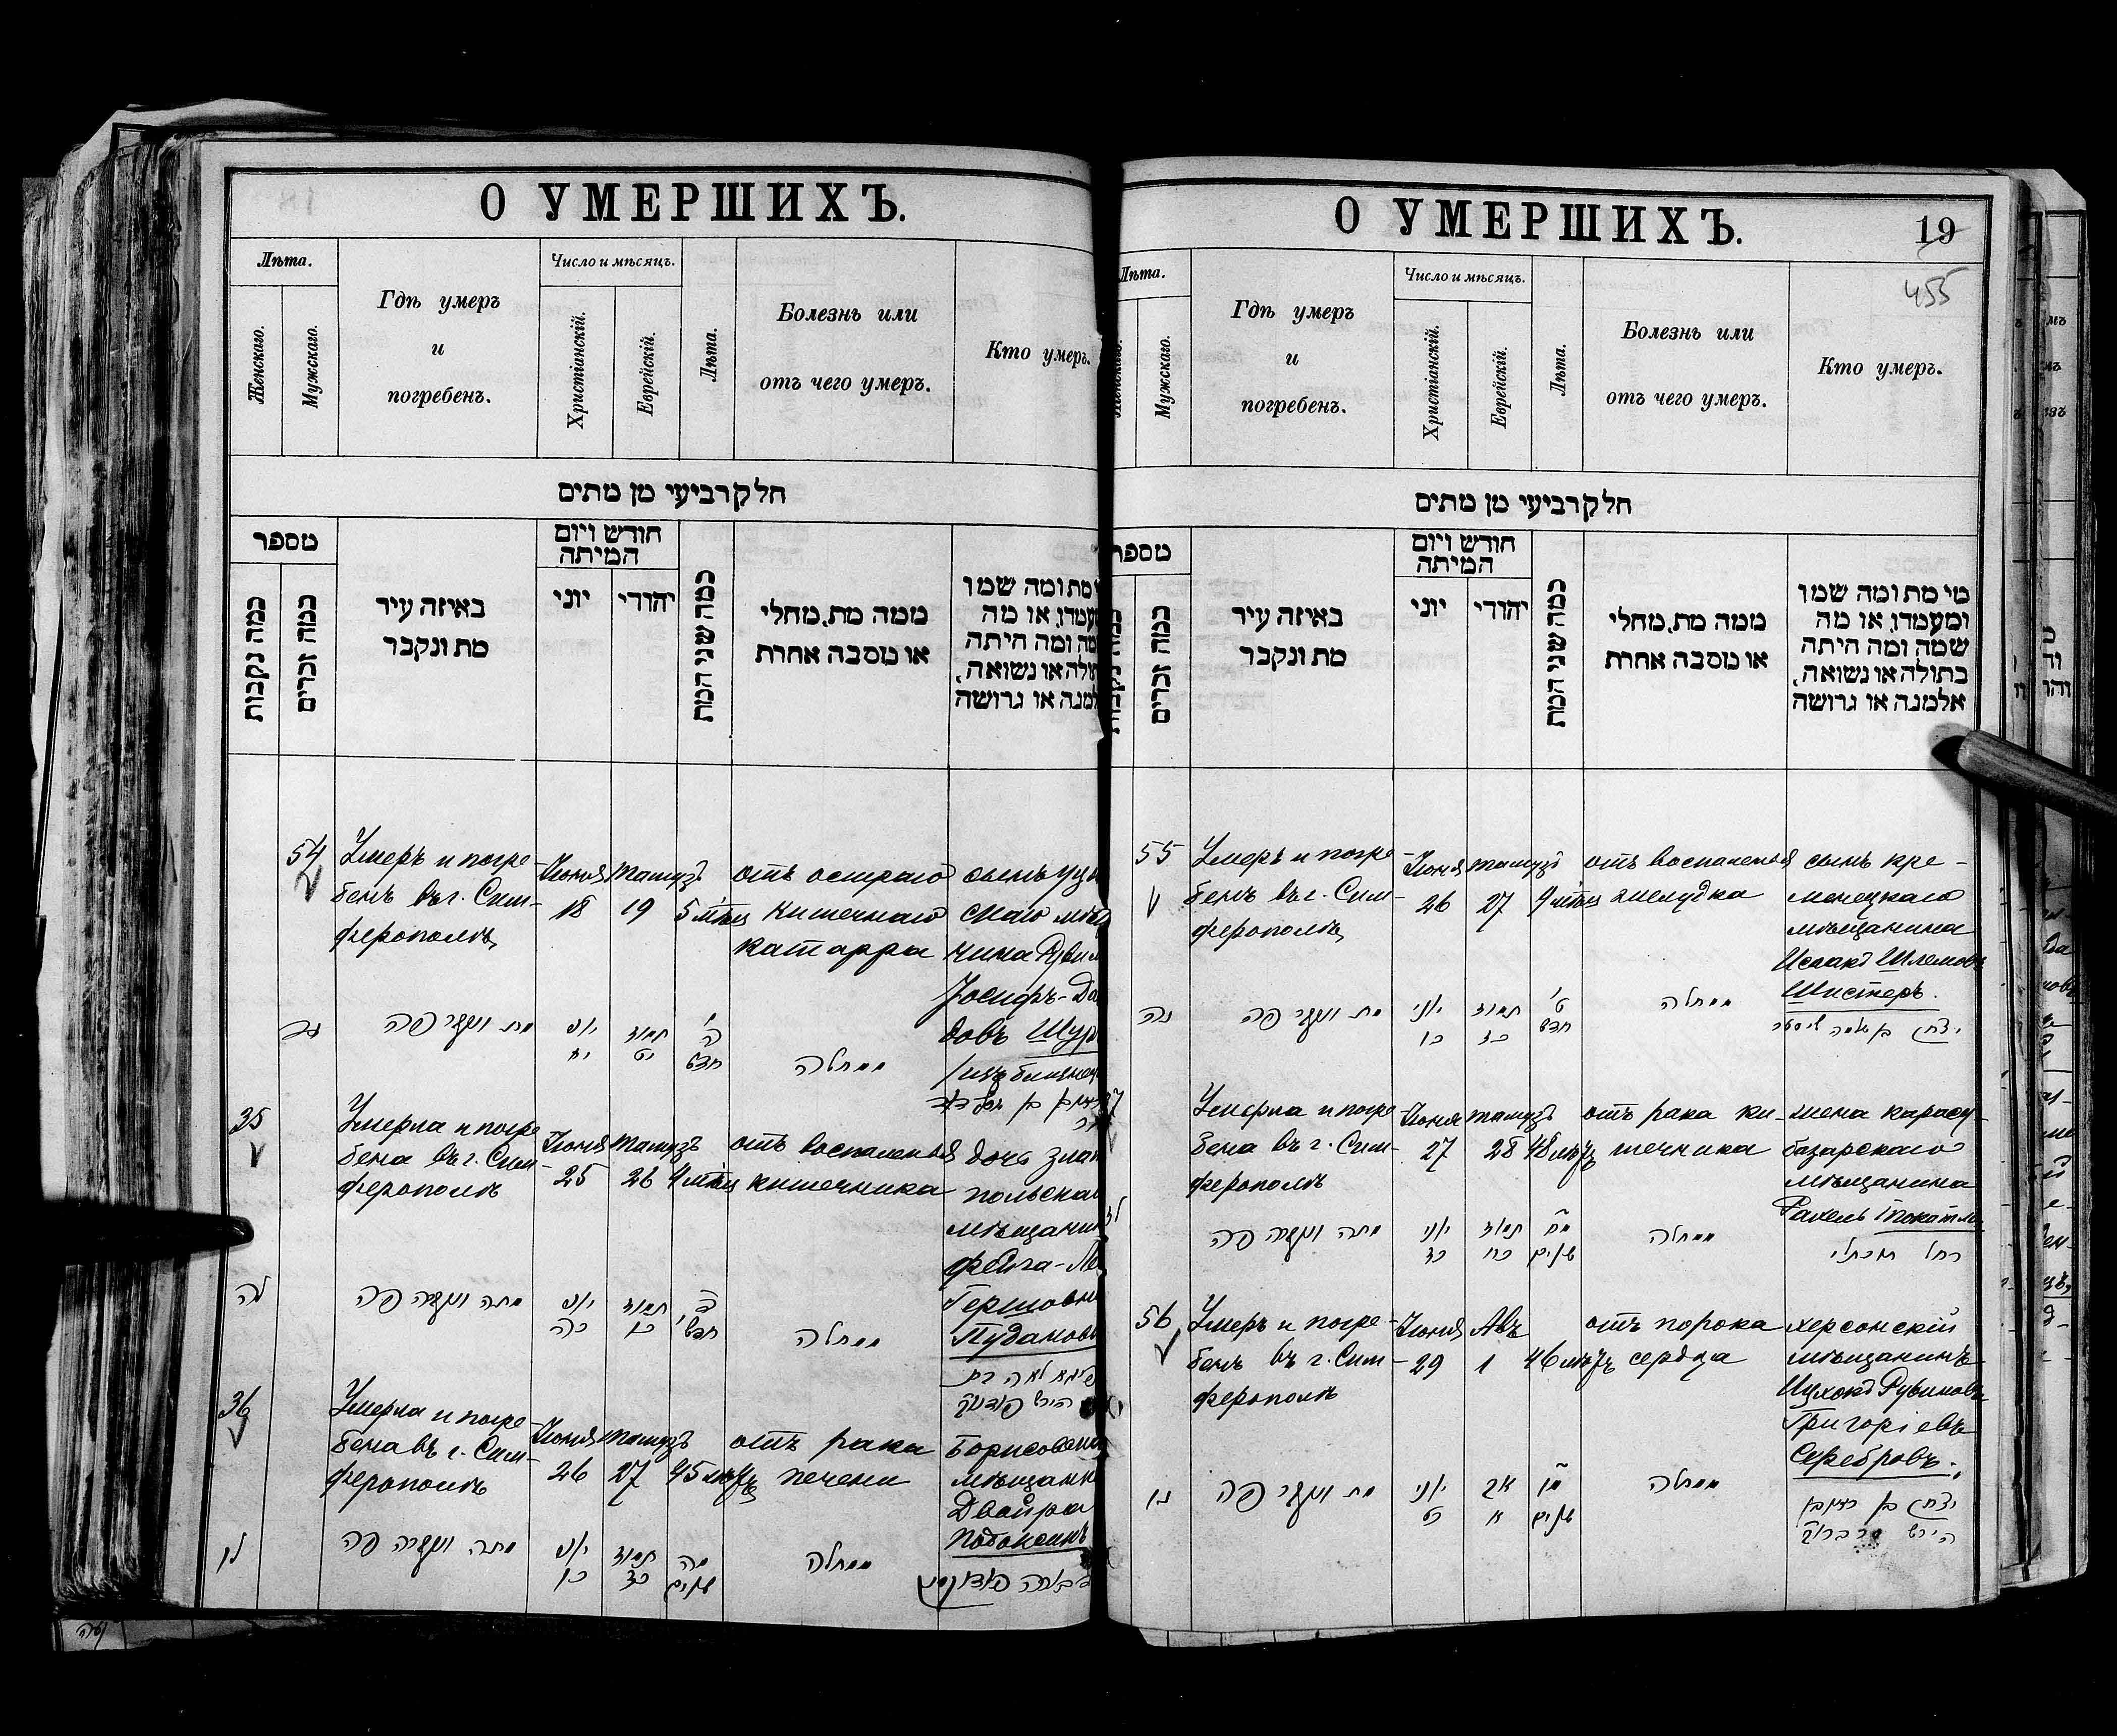 О УМЕРШИХЪ.
Лѣта.
Женскаго.
Мужскаго.
Гдѣ умеръ
и
погребенъ.
Число и мѣсяцъ.
Христіанскій.
Еврейскій.
Лѣта.
Болезнь или
отъ чего умеръ.
Кто умеръ.
חלק רביעי מן מתים
מספר
כמה נקבות
כמה זכרים
באיזה עיר
מת ונקבר
חודש ויום
המיתה
יוני
יהודי
כמה שני המת
ממה מת, מחלי
או מסבה אחרת
מת ומה שמו
או מה
ומה היתה
או נשואה,
או גרושה
54
Умеръ и погре-
бенъ въ г. Сим-
ферополѣ
Іюня
18
Тамузъ
19
5 мѣсяц
отъ остраго
кишечнаго
катарра
сынъ
скаго
чина
Іосифъ-Да
довъ Шур
נד
מת ונקבר פה
יוני
יח
תמוז
יט
ה'
חדש
ממחלה
35
Умерла и погре
бена въ г. Сим-
ферополѣ
Іюня
25
Тамузъ
26
4 мѣсяц
отъ воспаленія
кишечника
дочь злат
польскаг
мѣщанин
Фейга-Ле
Гершовна
Пудановъ
לה
מתה ונקברה פה
יוני
כה
תמוז
כו
ד'
חדש'
ממחלה
פייגא לאה בת
הירש
36
Умерла и погре-
бена въ г. Сим-
ферополѣ
Іюня
26
Тамузъ
27
45 лѣтъ
отъ рака
печени
Борисовски
мѣщанк
Двойра
לו
מתה ונקברה פה
יוני
כו
תמוז
כז
מה
שנים
ממחלה
О УМЕРШИХЪ.
19
455
Лѣта.
Женскаго.
Мужскаго.
Гдѣ умеръ
и
погребенъ.
Число и мѣсяцъ.
Христіанскій.
Еврейскій.
Лѣта.
Болезнь или
отъ чего умеръ.
Кто умеръ.
חלק רביעי מן מתים
מספר
כמה זכרים
באיזה עיר
מת ונקבר
חודש ויום
המיתה
יוני
יהודי
כמה שני המת
ממה מת, מחלי
או מסבה אחרת
מי מת ומה שמו
ומעמדו, או מה
שמה ומה היתה
בתולה או נשואה,
אלמנה או גרושה
55
Умеръ и погре-
бенъ въ г. Сим-
ферополѣ
Іюня
26
Тамузъ
27
9 мѣсяц
отъ воспаленія
желудка
сынъ кре-
менецкаго
мѣщанина
Исаакъ Шлемовъ
Шистеръ.
נה
מת ונקבר פה
יוני
כו
תמוז
כז
ט'
חדש
ממחלה
יצחק בן שלמה שיסטר
37
Умерла и погре
бена въ г. Сим-
ферополѣ
Іюня
27
Тамузъ
28
48 лѣтъ
отъ рака ки-
шечника
жена карасу-
базарскаго
мѣщанина
Рахель Токатлы
לז
מתה ונקברה פה
יוני
כז
תמוז
כח
מח
שנים
ממחלה
רחל
56
Умеръ и погре-
бенъ въ г. Сим-
ферополѣ
Іюня
29
Авъ
1
46 лѣтъ
отъ порока
сердца
херсонскій
мѣщанинъ
Ицхокъ Рувиновъ
Григоріевъ
Серебровъ.
נו
מת ונקבר פה
יוני
כט
אב
א
מו
שנים
ממחלה
יצחק בן ראובן
הירש סרברוב